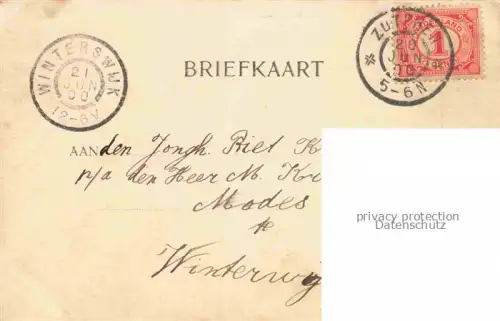 WINTERSWIJK
21
JUN
00
12-6V
BRIEFKAART
ZUTPH
20
JUN
5-6N
1
AAN den Jongh. Piet K
p/a den Heer M. Kr
Modes
te
Winterswij
privacy protection
Datenschutz